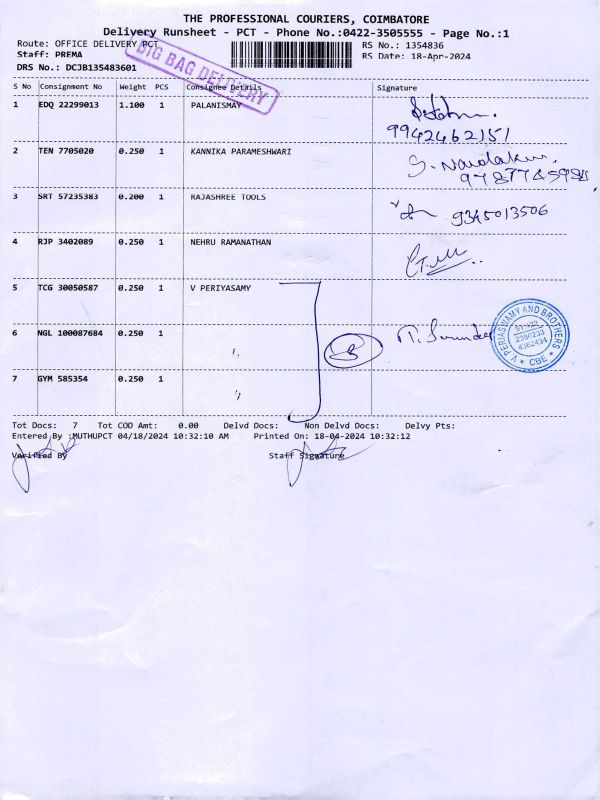 THE PROFESSIONAL COURIERS, COIMBATORE
Delivery Runsheet - PCT - Phone No.:0422-3505555 - Page No.:1
Route: OFFICE DELIVERY PCT
RS No.: 1354836
Staff: PREMA
RS Date: 18-Apr-2024
DRS No.: DCJB135483601
BIG BAG DELIVERY
S No Consignment No Weight PCS Consignee Details Signature
1 EDQ 22299013 1.100 1 PALANISMAY
9942462151
2 TEN 7705020 0.250 1 KANNIKA PARAMESHWARI
3 SRT 57235383 0.200 1 RAJASHREE TOOLS
9345013506
4 RJP 3402089 0.250 1 NEHRU RAMANATHAN
5 TCG 30050587 0.250 1 V PERIYASAMY
6 NGL 100087684 0.250 1 "
V PERIASWAMY AND BROTHERS
2380233
4382434
* CBE *
7 GYM 585354 0.250 1 "
Tot Docs: 7 Tot COD Amt: 0.00 Delvd Docs: Non Delvd Docs: Delvy Pts:
Entered By :MUTHUPCT 04/18/2024 10:32:10 AM Printed On: 18-04-2024 10:32:12
Verified By Staff Signature